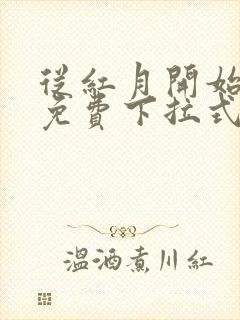 從紅月開始
免費下拉式
溫酒煮川紅